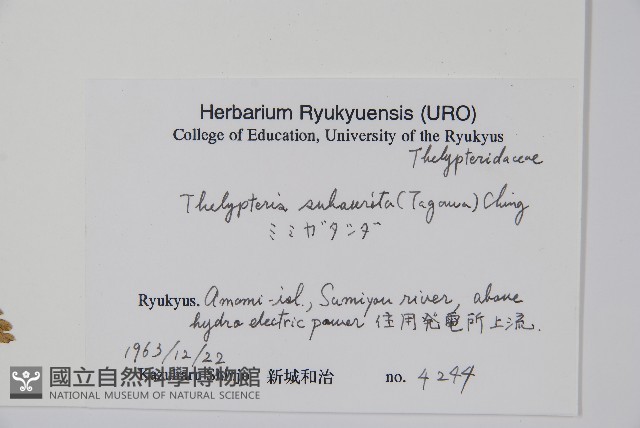 Herbarium Ryukyuensis (URO)
College of Education, University of the Ryukyus
Thelypteridaceae
Thelypteris subaurita (Tagawa) Ching
ミミガタシダ
Ryukyus. Amami-isl., Sumiyou river, above
hydro electric power 住用発電所上流.
1963/12/22
新城和治 no. 4244
國立自然科學博物館
NATIONAL MUSEUM OF NATURAL SCIENCE